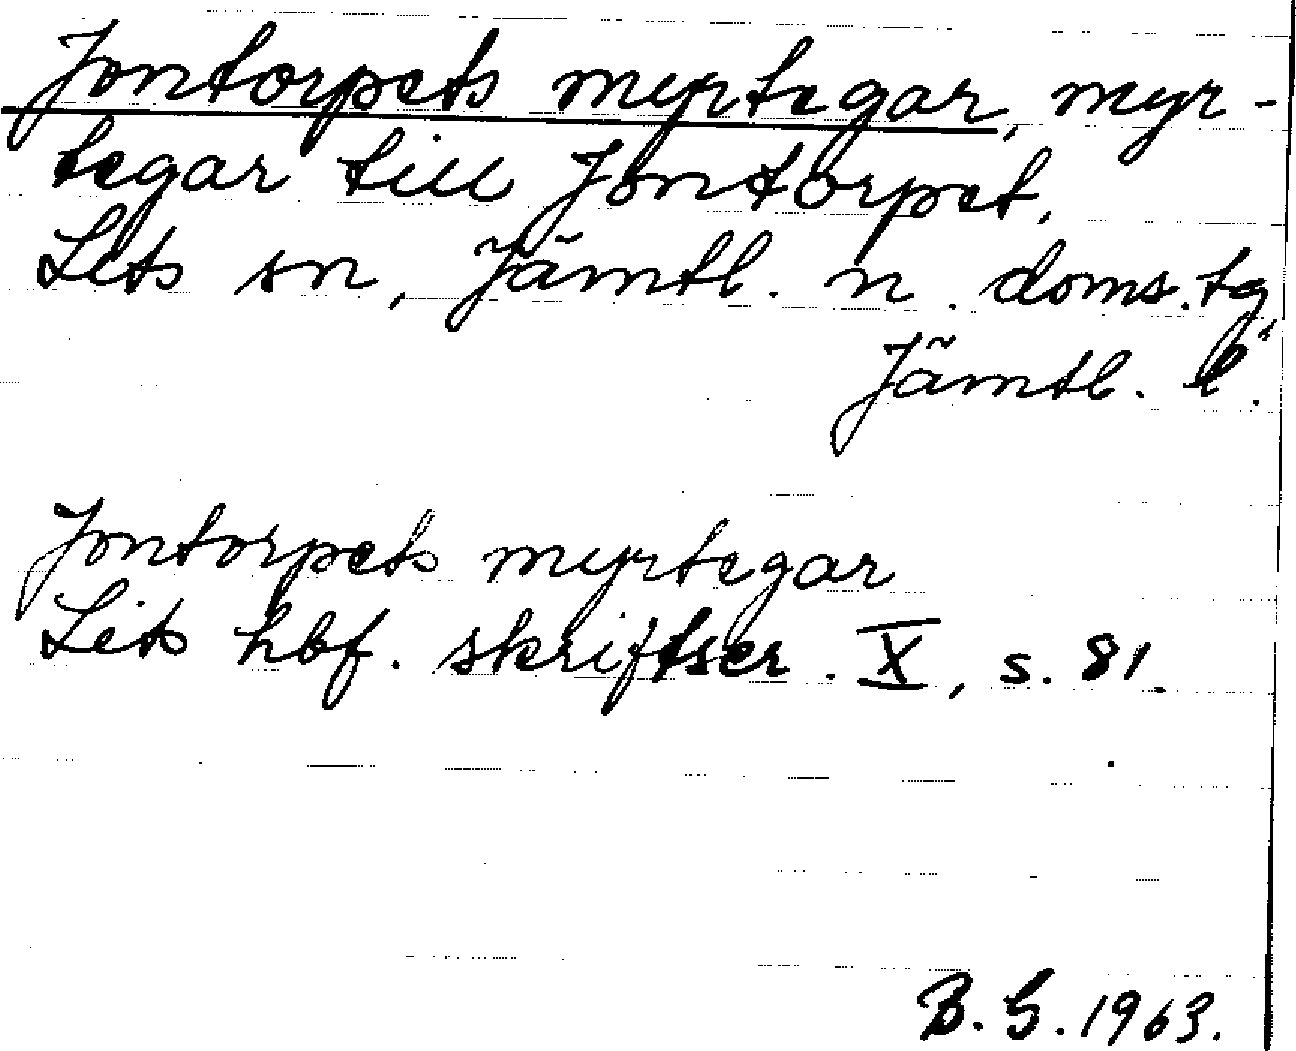 Jontorpets myrtegar, myr-
tegar till Jontorpet.
Lits sn, Jämtl. n. doms.tg,
Jämtl. l.
Jontorpets myrtegar
Lits hbf. skriftser. X, s. 81.
B. G. 1963.